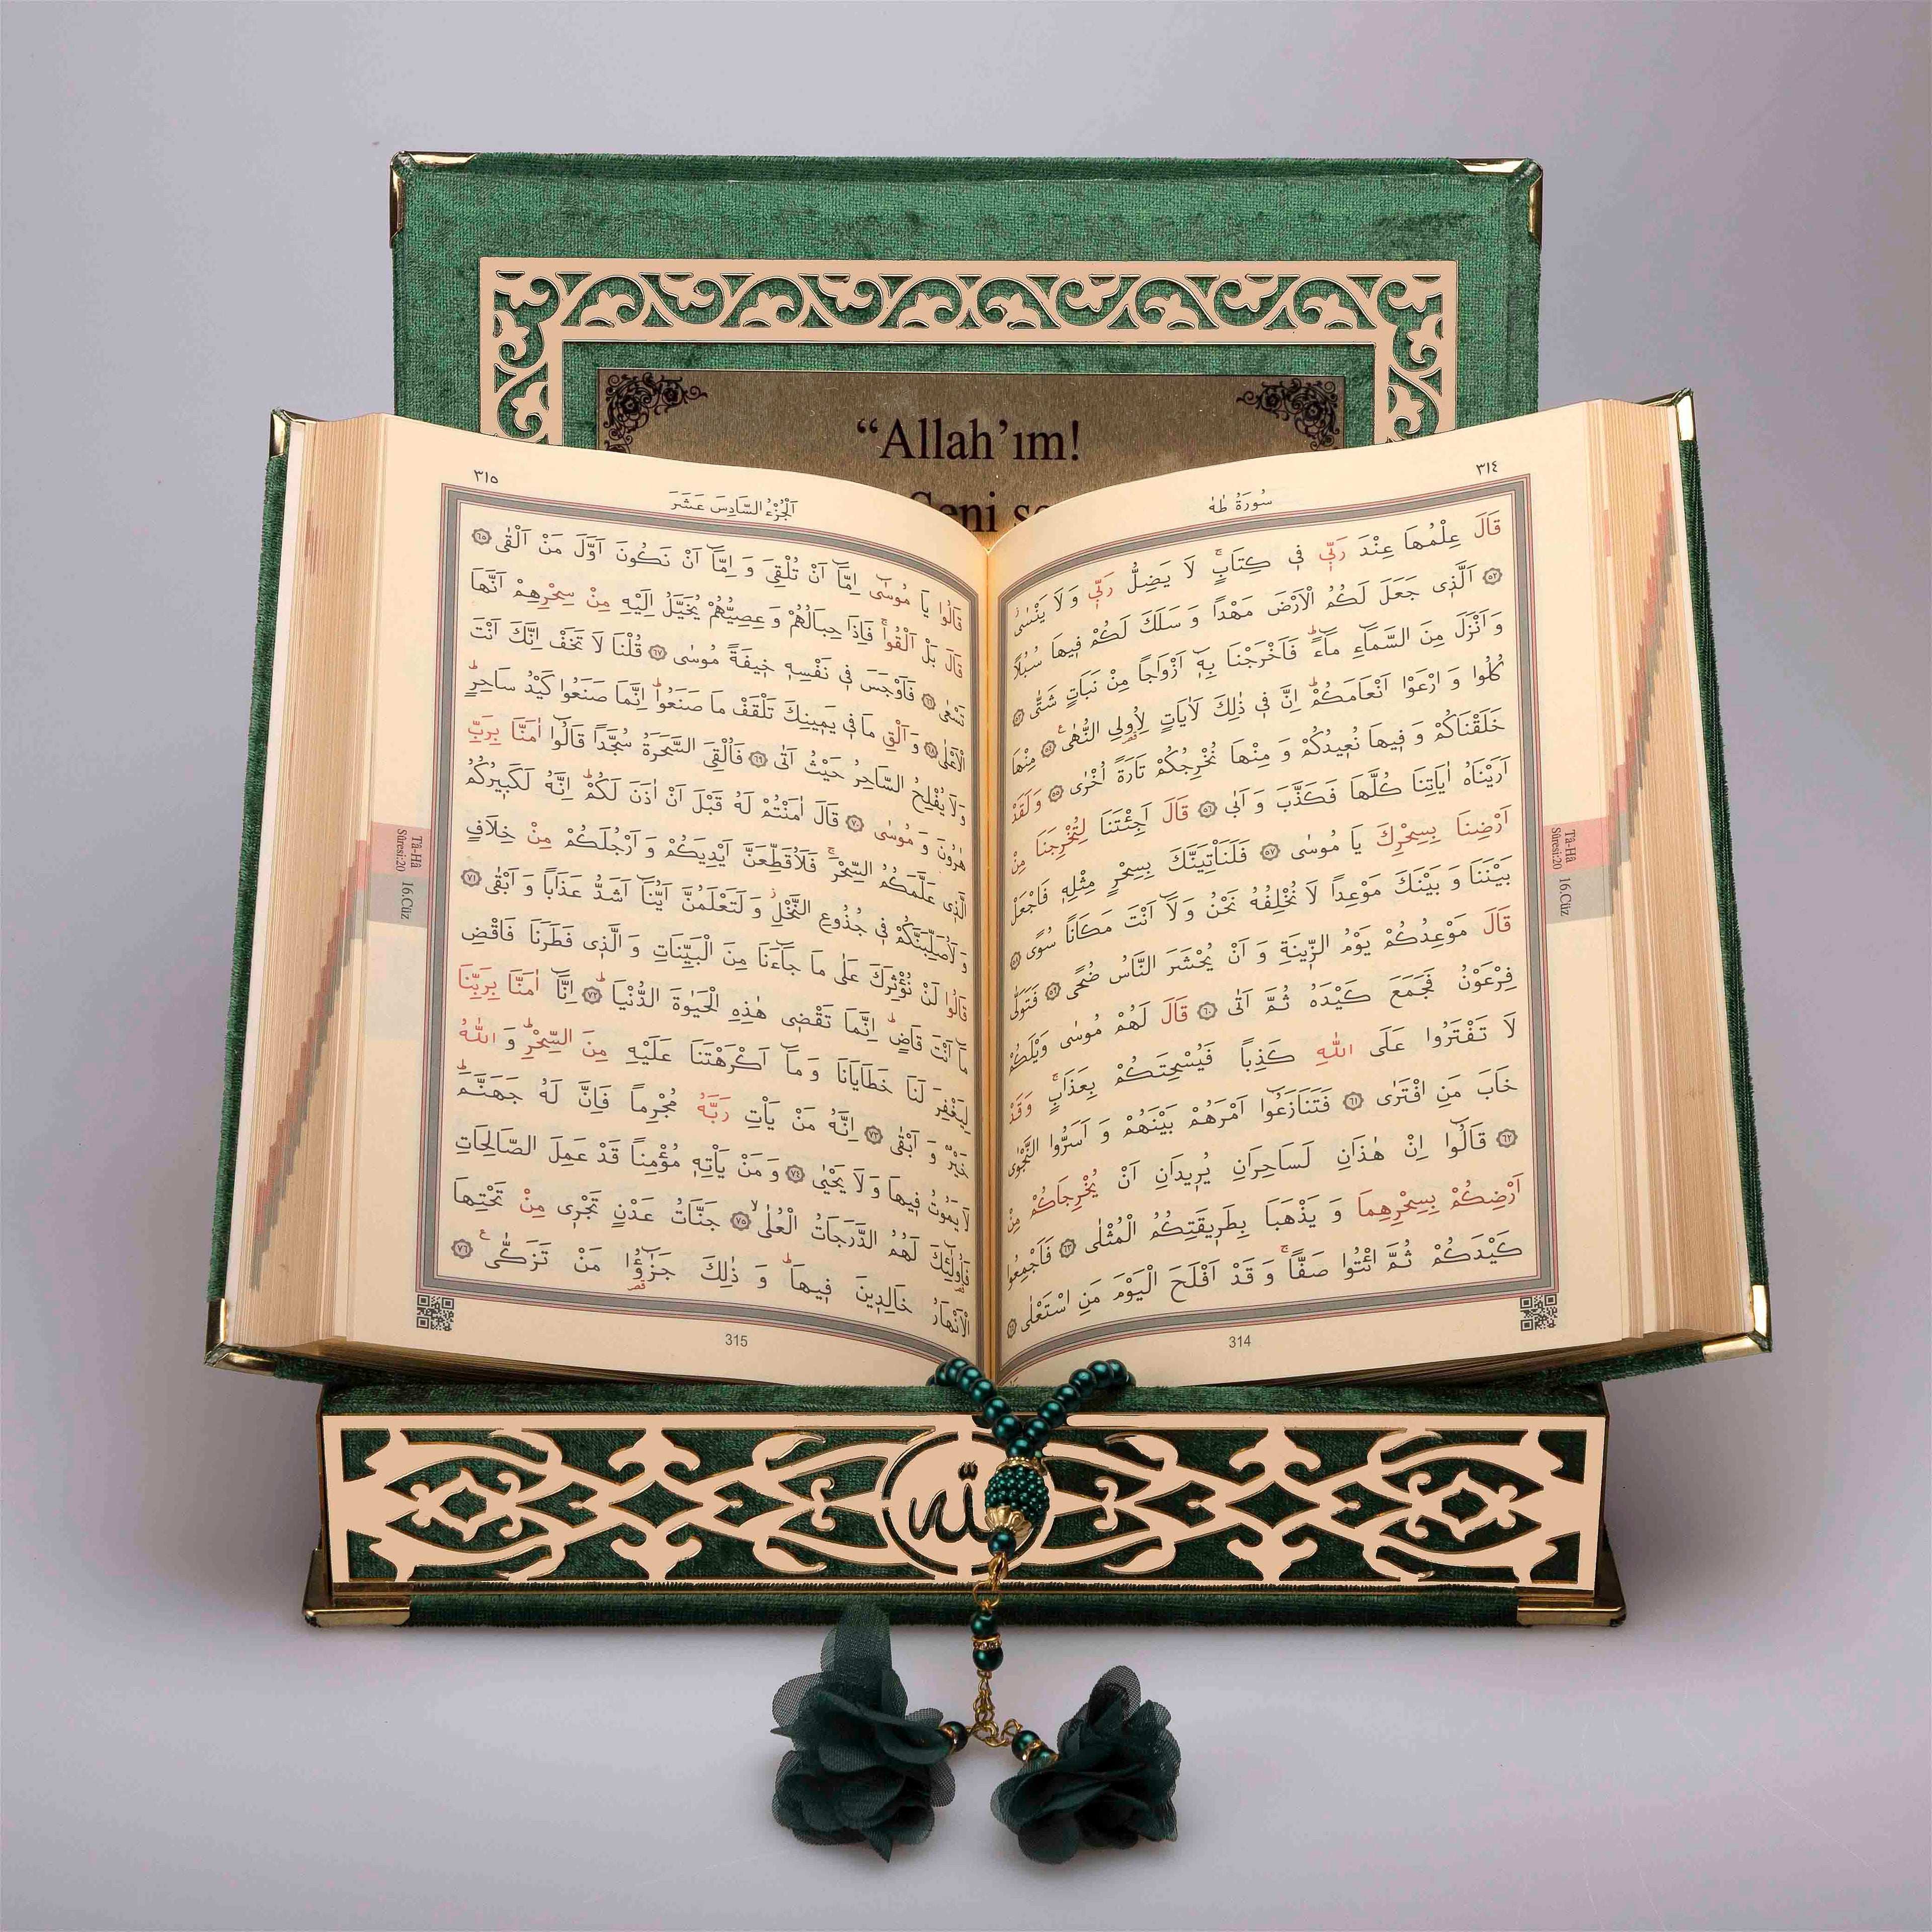 “Allah’ım!
Seni se
٣١٤
سُورَةُ طٰهٰ
قَالَ عِلْمُهَا عِنْدَ رَبّ۪ي ف۪ي كِتَابٍۚ لَا يَضِلُّ رَبّ۪ي وَلَا يَنْسٰىۘ
﴿٥٢﴾ اَلَّذ۪ي جَعَلَ لَكُمُ الْاَرْضَ مَهْداً وَ سَلَكَ لَكُمْ ف۪يهَا سُبُلاً
وَ اَنْزَلَ مِنَ السَّمَٓاءِ مَٓاءًۜ فَاَخْرَجْنَا بِه۪ٓ اَزْوَاجاً مِنْ نَبَاتٍ شَتّٰى ﴿٥٣﴾
كُلُوا وَ ارْعَوْا اَنْعَامَكُمْۜ اِنَّ ف۪ي ذٰلِكَ لَاٰيَاتٍ لِاُو۬لِي النُّهٰى۟ ﴿٥٤﴾ مِنْهَا
خَلَقْنَاكُمْ وَ ف۪يهَا نُع۪يدُكُمْ وَ مِنْهَا نُخْرِجُكُمْ تَارَةً اُخْرٰى ﴿٥٥﴾ وَلَقَدْ
اَرَيْنَاهُ اٰيَاتِنَا كُلَّهَا فَكَذَّبَ وَ اَبٰى ﴿٥٦﴾ قَالَ اَجِئْتَنَا لِتُخْرِجَنَا مِنْ
اَرْضِنَا بِسِحْرِكَ يَا مُوسٰى ﴿٥٧﴾ فَلَنَأْتِيَنَّكَ بِسِحْرٍ مِثْلِه۪ فَاجْعَلْ
بَيْنَنَا وَ بَيْنَكَ مَوْعِداً لَا نُخْلِفُهُ نَحْنُ وَ لَٓا اَنْتَ مَكَاناً سُوًى ﴿٥٨﴾
قَالَ مَوْعِدُكُمْ يَوْمُ الزّ۪ينَةِ وَ اَنْ يُحْشَرَ النَّاسُ ضُحًى ﴿٥٩﴾ فَتَوَلّٰى
فِرْعَوْنُ فَجَمَعَ كَيْدَهُ ثُمَّ اَتٰى ﴿٦٠﴾ قَالَ لَهُمْ مُوسٰى وَيْلَكُمْ
لَا تَفْتَرُوا عَلَى اللّٰهِ كَذِباً فَيُسْحِتَكُمْ بِعَذَابٍۚ وَقَدْ
خَابَ مَنِ افْتَرٰى ﴿٦١﴾ فَتَنَازَعُٓوا اَمْرَهُمْ بَيْنَهُمْ وَ اَسَرُّوا النَّجْوٰى
﴿٦٢﴾ قَالُٓوا اِنْ هٰذَانِ لَسَاحِرَانِ يُر۪يدَانِ اَنْ يُخْرِجَاكُمْ مِنْ
اَرْضِكُمْ بِسِحْرِهِمَا وَ يَذْهَبَا بِطَر۪يقَتِكُمُ الْمُثْلٰى ﴿٦٣﴾ فَاَجْمِعُوا
كَيْدَكُمْ ثُمَّ ائْتُوا صَفاًّۚ وَ قَدْ اَفْلَحَ الْيَوْمَ مَنِ اسْتَعْلٰى ﴿٦٤﴾
Tâ-Hâ
Sûresi:20
16.Cüz
314
٣١٥
اَلْجُزْءُ السَّادِسَ عَشَرَ
قَالُوا يَا مُوسٰٓى اِمَّٓا اَنْ تُلْقِيَ وَ اِمَّٓا اَنْ نَكُونَ اَوَّلَ مَنْ اَلْقٰى ﴿٦٥﴾
قَالَ بَلْ اَلْقُواۚ فَاِذَا حِبَالُهُمْ وَ عِصِيُّهُمْ يُخَيَّلُ اِلَيْهِ مِنْ سِحْرِهِمْ اَنَّهَا
تَسْعٰى ﴿٦٦﴾ فَاَوْجَسَ ف۪ي نَفْسِه۪ خ۪يفَةً مُوسٰى ﴿٦٧﴾ قُلْنَا لَا تَخَفْ اِنَّكَ اَنْتَ
الْاَعْلٰى ﴿٦٨﴾ وَ اَلْقِ مَا ف۪ي يَم۪ينِكَ تَلْقَفْ مَا صَنَعُواۜ اِنَّمَا صَنَعُوا كَيْدُ سَاحِرٍۜ
وَ لَا يُفْلِحُ السَّاحِرُ حَيْثُ اَتٰى ﴿٦٩﴾ فَاُلْقِيَ السَّحَرَةُ سُجَّداً قَالُٓوا اٰمَنَّا بِرَبِّ
هٰرُونَ وَ مُوسٰى ﴿٧٠﴾ قَالَ اٰمَنْتُمْ لَهُ قَبْلَ اَنْ اٰذَنَ لَكُمْۜ اِنَّهُ لَكَب۪يرُكُمُ
الَّذ۪ي عَلَّمَكُمُ السِّحْرَۚ فَلَاُقَطِّعَنَّ اَيْدِيَكُمْ وَ اَرْجُلَكُمْ مِنْ خِلَافٍ
وَ لَاُصَلِّبَنَّكُمْ ف۪ي جُذُوعِ النَّخْلِۘ وَ لَتَعْلَمُنَّ اَيُّنَٓا اَشَدُّ عَذَاباً وَ اَبْقٰى ﴿٧١﴾
قَالُوا لَنْ نُؤْثِرَكَ عَلٰى مَا جَٓاءَنَا مِنَ الْبَيِّنَاتِ وَ الَّذ۪ي فَطَرَنَا فَاقْضِ
مَٓا اَنْتَ قَاضٍۜ اِنَّمَا تَقْض۪ي هٰذِهِ الْحَيٰوةَ الدُّنْيَاۜ ﴿٧٢﴾ اِنَّٓا اٰمَنَّا بِرَبِّنَا
لِيَغْفِرَ لَنَا خَطَايَانَا وَ مَٓا اَكْرَهْتَنَا عَلَيْهِ مِنَ السِّحْرِۜ وَ اللّٰهُ
خَيْرٌ وَ اَبْقٰى ﴿٧٣﴾ اِنَّهُ مَنْ يَأْتِ رَبَّهُ مُجْرِماً فَاِنَّ لَهُ جَهَنَّمَۜ
لَا يَمُوتُ ف۪يهَا وَ لَا يَحْيٰى ﴿٧٤﴾ وَ مَنْ يَأْتِه۪ مُؤْمِناً قَدْ عَمِلَ الصَّالِحَاتِ
فَاُو۬لٰٓئِكَ لَهُمُ الدَّرَجَاتُ الْعُلٰىۙ ﴿٧٥﴾ جَنَّاتُ عَدْنٍ تَجْر۪ي مِنْ تَحْتِهَا
الْاَنْهَارُ خَالِد۪ينَ ف۪يهَاۜ وَ ذٰلِكَ جَزٰٓؤُ۬ا مَنْ تَزَكّٰى۟ ﴿٧٦﴾
Tâ-Hâ
Sûresi:20
16.Cüz
315
الله